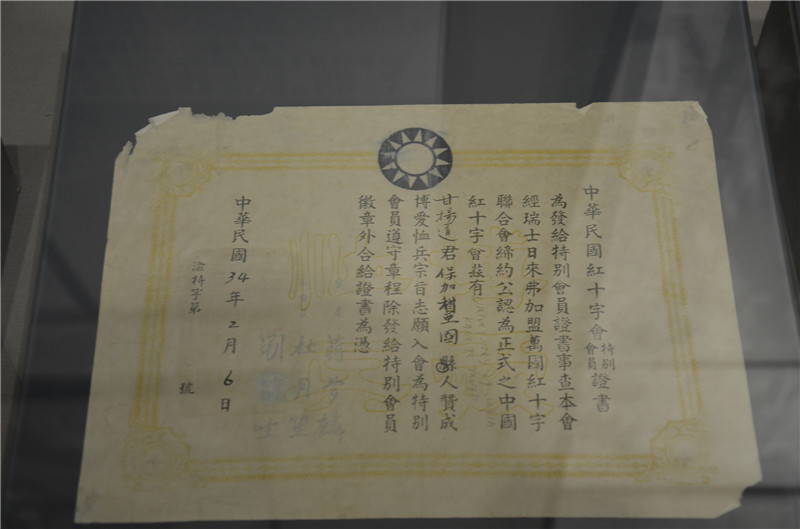 中華民國紅十字會特別會員證書
為發給特別會員證書事查本會
經瑞士日來弗加盟萬國紅十字
聯合會締約公認為正式之中國
紅十字會茲有
甘揚道君保加利亞国縣人贊成
博愛恤兵宗旨志願入會為特別
會員遵守章程除發給特別會員
徽章外合給證書為憑
蔣夢麟
杜月笙
劉
中華民國34年2月6日
渝特字第 號